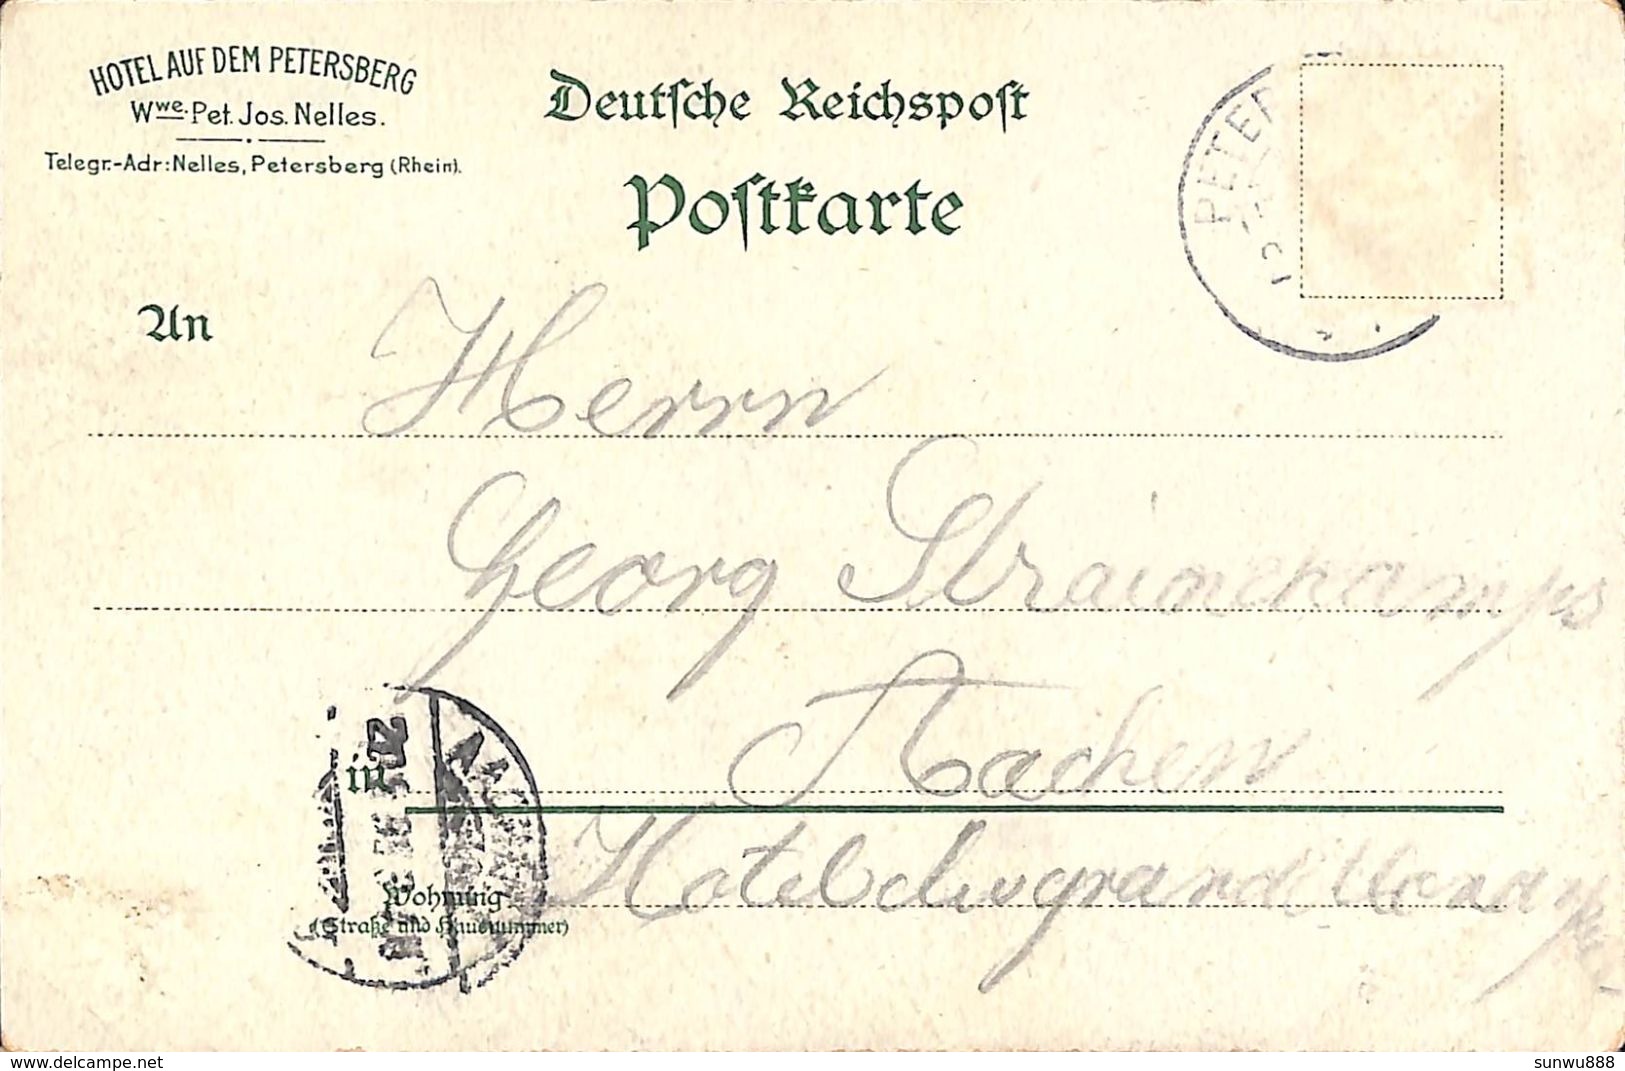 HOTEL AUF DEM PETERSBERG
Wwe. Pet. Jos. Nelles.
Telegr.-Adr: Nelles, Petersberg (Rhein).
Deutsche Reichspost
Postkarte
PETER
An
Herrn
Georg Strainchamps
Aachen
in
AACHEN
Hotel du grand
Wohnung
(Straße und Hausnummer)
www.delcampe.net
sunwu888